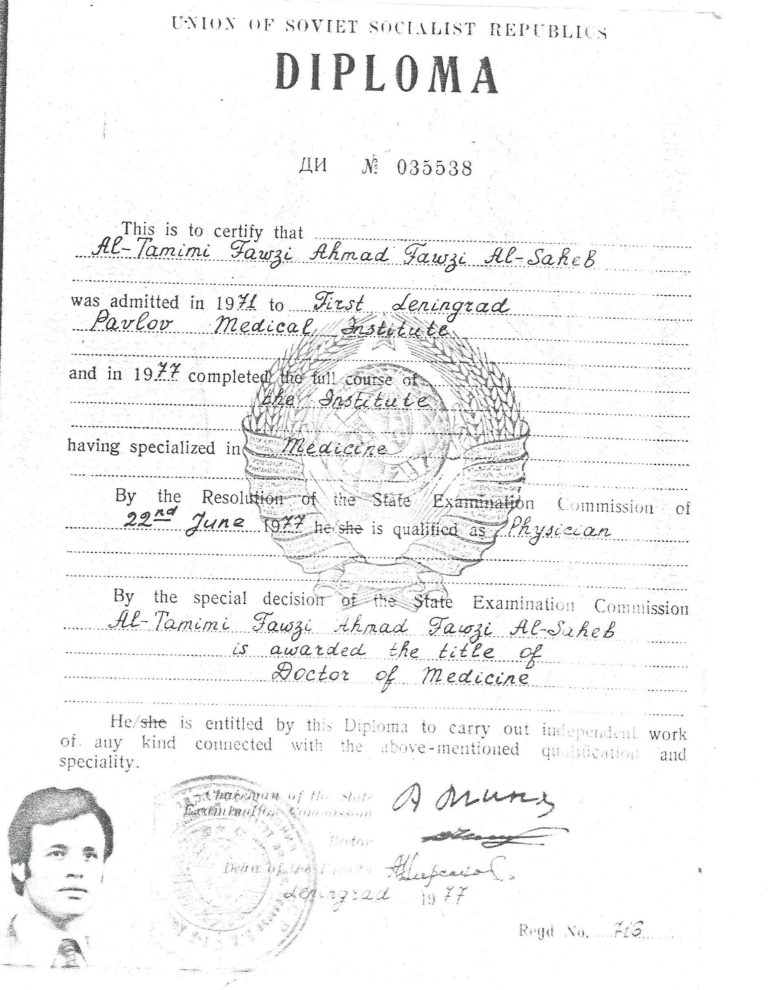 UNION OF SOVIET SOCIALIST REPUBLICS
DIPLOMA
ДИ № 035538
This is to certify that
Al-Tamimi Fawzi Ahmad Fawzi Al-Saheb
was admitted in 1971 to First Leningrad
Pavlov Medical Institute
and in 1977 completed the full course of
the Institute
having specialized in Medicine
By the Resolution of the State Examination Commission of
22nd June 1977 he/she is qualified as Physician
By the special decision of the State Examination Commission
Al-Tamimi Fawzi Ahmad Fawzi Al-Saheb
is awarded the title of
Doctor of Medicine
He/she is entitled by this Diploma to carry out independent work
of any kind connected with the above-mentioned qualification and
speciality.
Chairman of the State
Examination Commission
Rector
Dean of the Faculty
Leningrad 1977
Regd No. 716